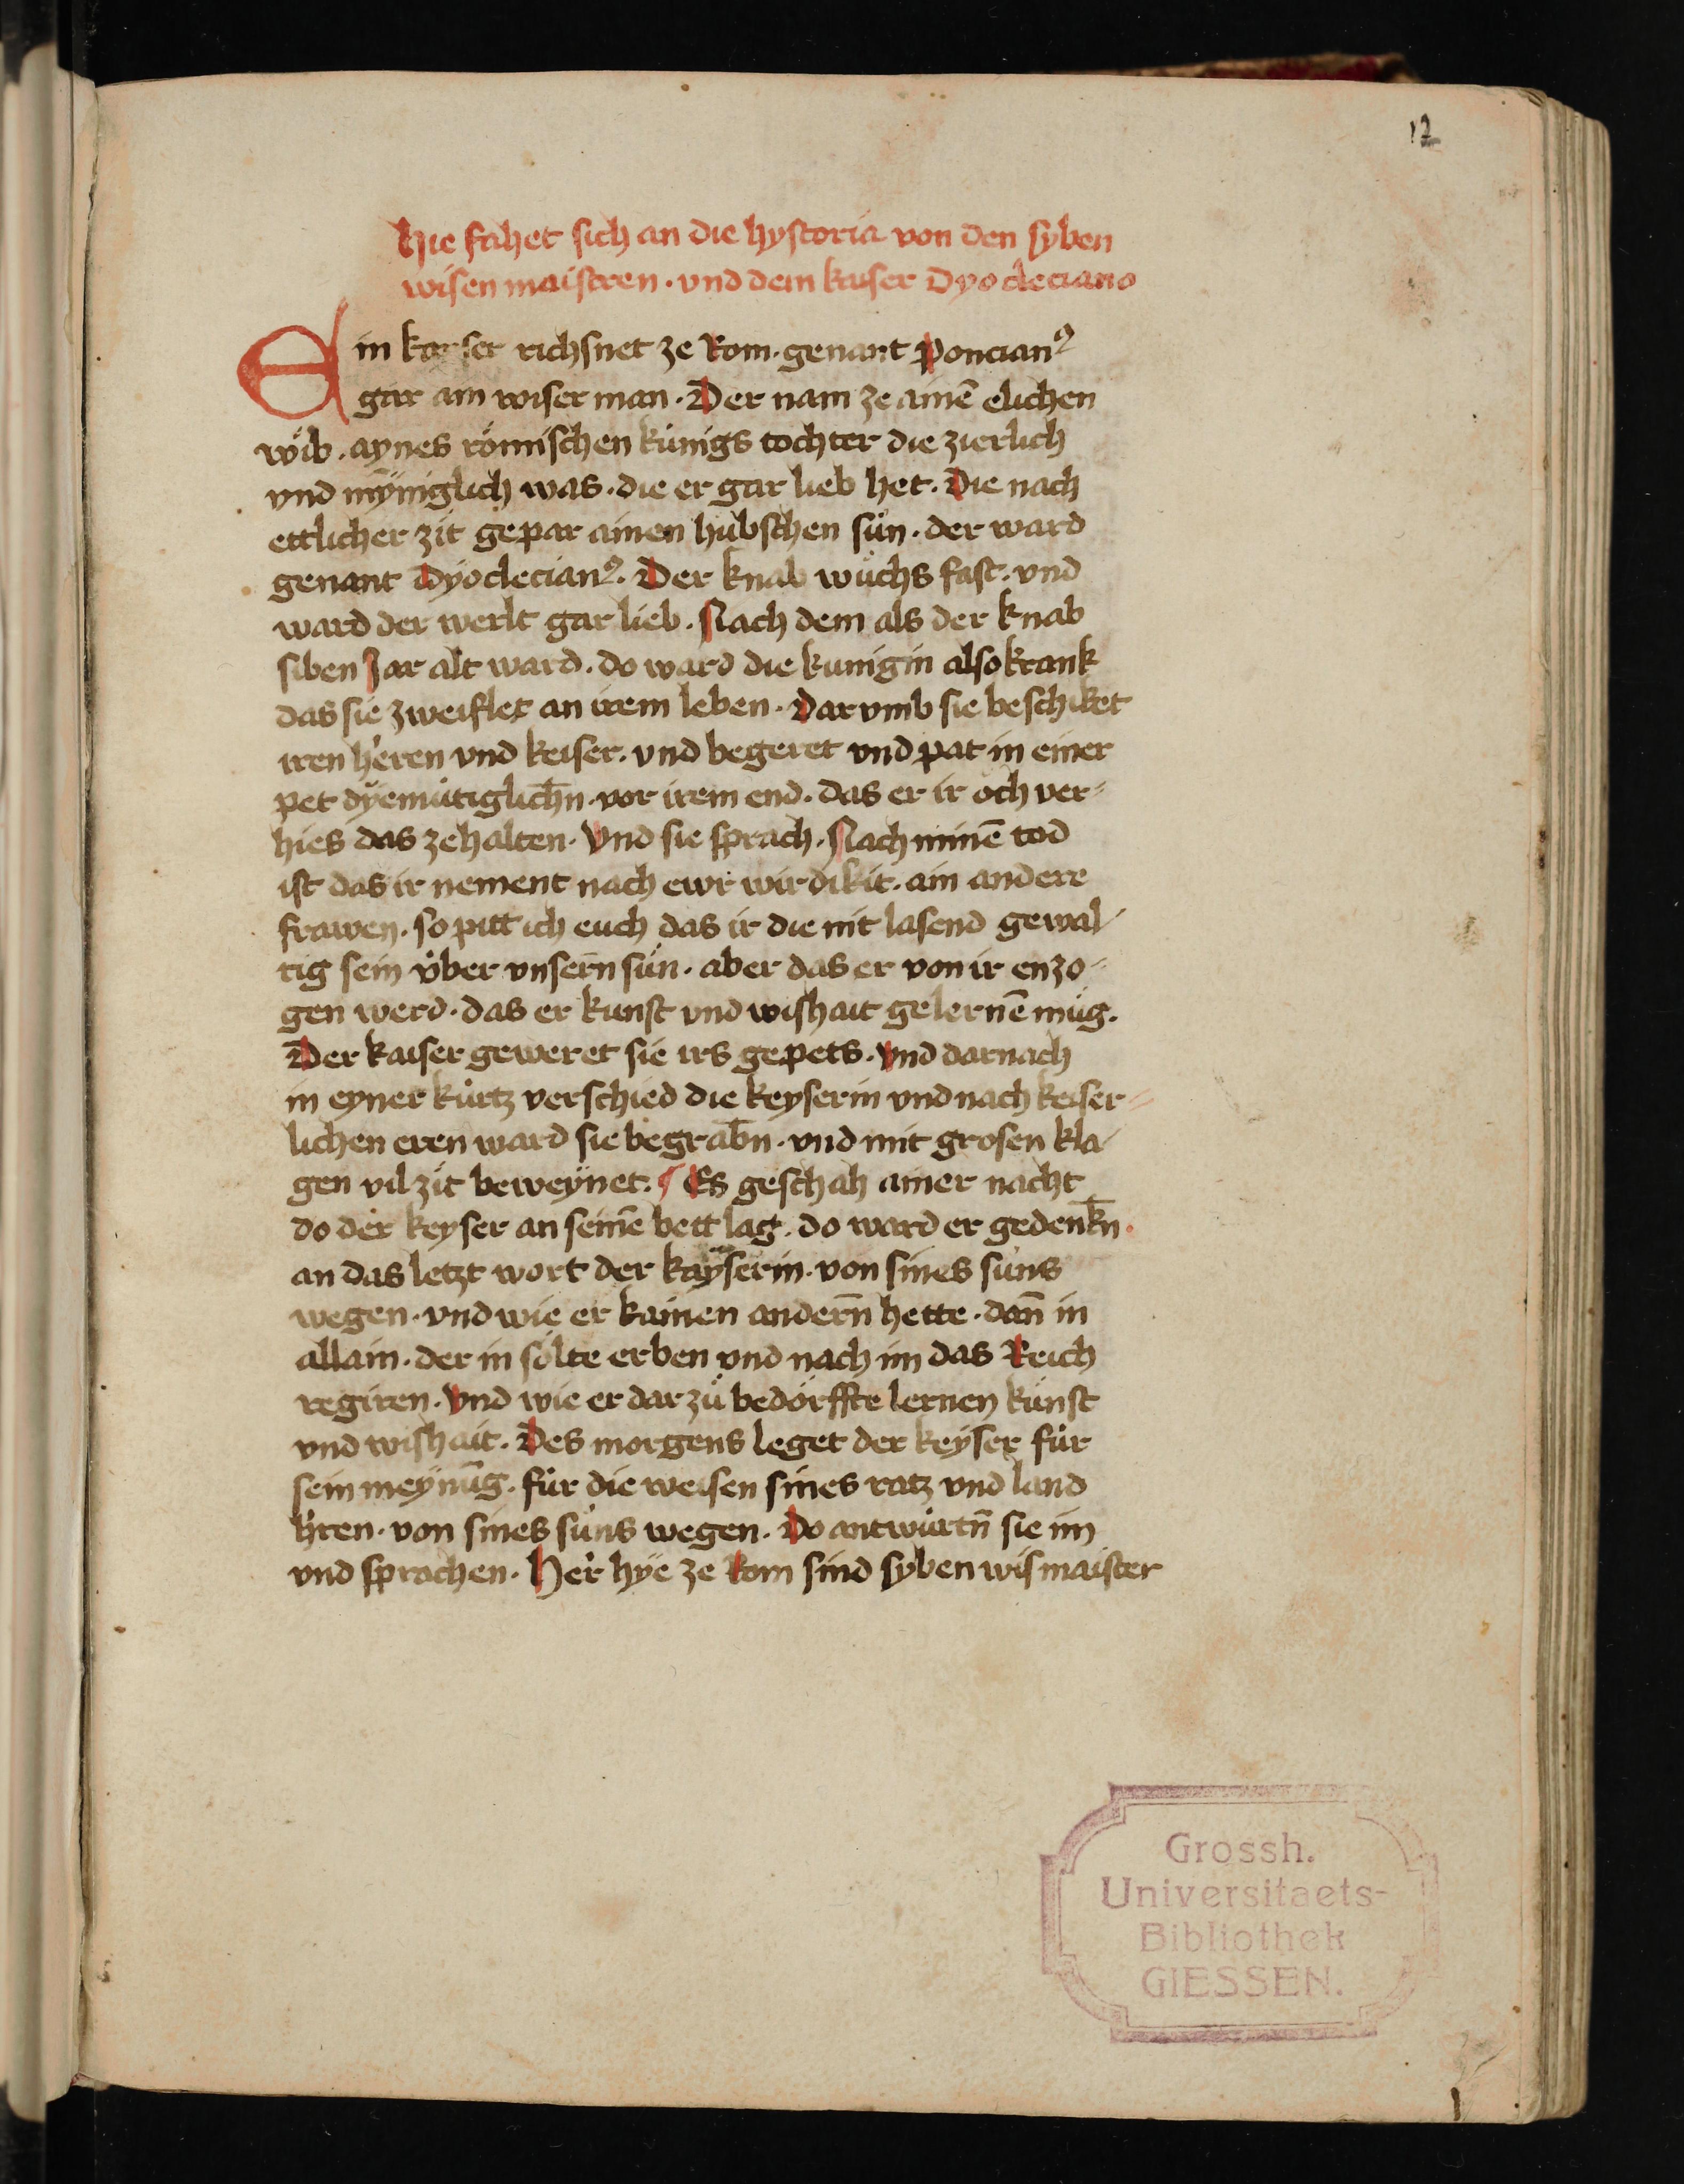 12
Hie fahet sich an die hystoria von den syben
wisen maistren · vnd dem kaiser Dyocleciano
Ein kayser richsnet ze Rom · genant Poncianꝰ
gar ain wiser man · Der nam ze ainē elichen
wib · aynes römischen künigs tochter die zierlich
vnd mÿniglich was · die er gar lieb het · Die nach
ettlicher zit gepar ainen hübschen sün · der ward
genant Dyoclecianꝰ · Der knab wuchs fast · vnd
ward der werlt gar lieb · Nach dem als der knab
siben Jar alt ward · do ward die kunigin also krank
das sie zweiflet an irem leben · Dar vmb sie beschiket
iren heren vnd keiser · vnd begeret vnd pat in einer
pet dÿemütiglichn̄ · vor irem end · das er ir och ver-
hies das zehalten · Vnd sie sprach · Nach minē tod
ist das ir nement nach ewr wirdikit · ain andere
frawen · so pitt ich euch das ir die nit lasend gewal-
tig sein v̈ber vnsern̄ sün · aber das er von ir enzo-
gen werd · das er kunst vnd wishait gelernē müg ·
Der kaiser geweret sie irs gepets · Vnd darnach
in eyner kürtz verschied die keyserin vnd nach keiser-
lichen eren ward sie begrabn̄ · vnd mit grosen kla-
gen vil zit beweÿnet · ¶ Es geschah ainer nacht
do der keyser an seinē bett lag · do ward er gedenkn̄ ·
an das letzt wort der kayserin · von sines suns
wegen · vnd wie er kainen andern̄ hette · dan̄ in
allain · der in sölte erben vnd nach im das Reich
regiren · Vnd wie er dar zü bedörffte lernen künst
vnd wishait · Des morgens leget der keÿser für
sein meÿnūg · für die weisen sines ratz vnd land
hren · von sines süns wegen · Do antwürtn̄ sie im
vnd sprachen · Her hÿe ze Rom sind syben wis maister
Grossh.
Universitaets-
Bibliothek
GIESSEN.